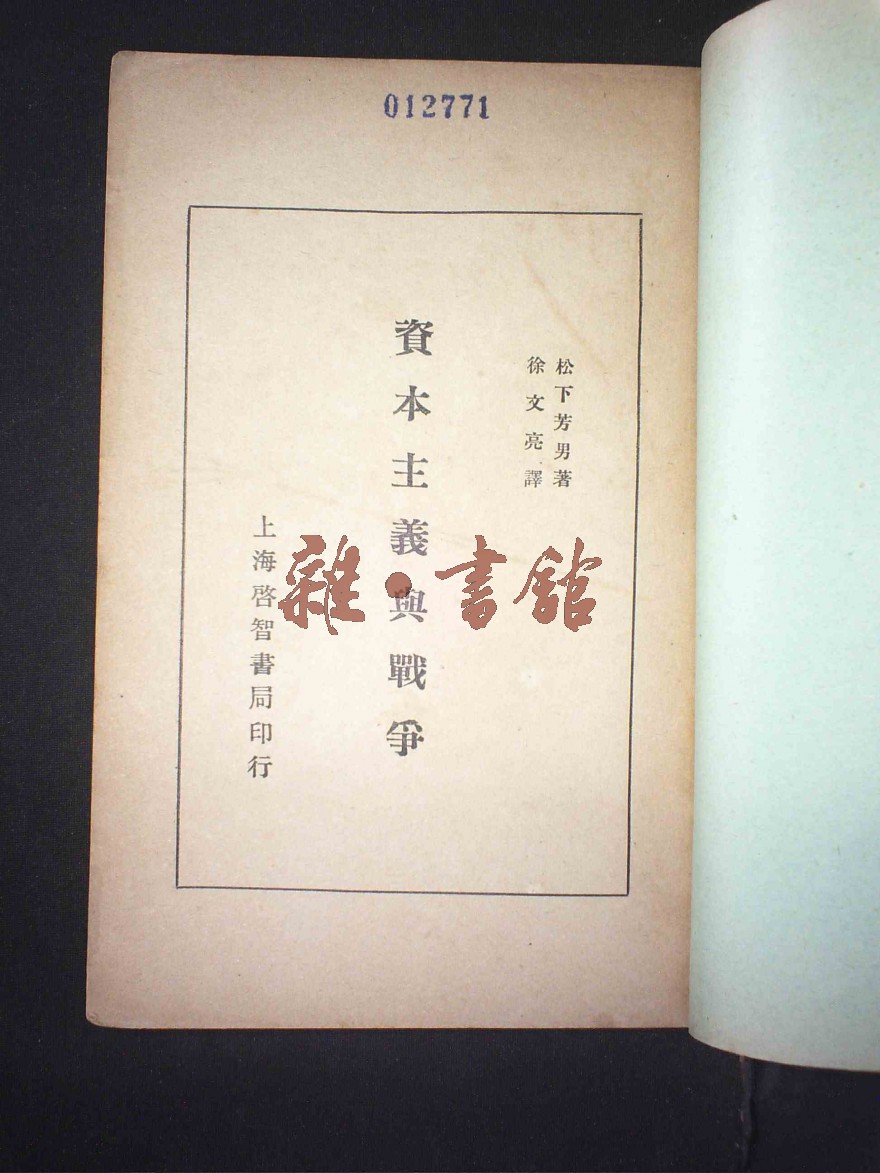 012771
松下芳男著
徐文亮譯
資本主義與戰爭
上海啓智書局印行
雜·書館